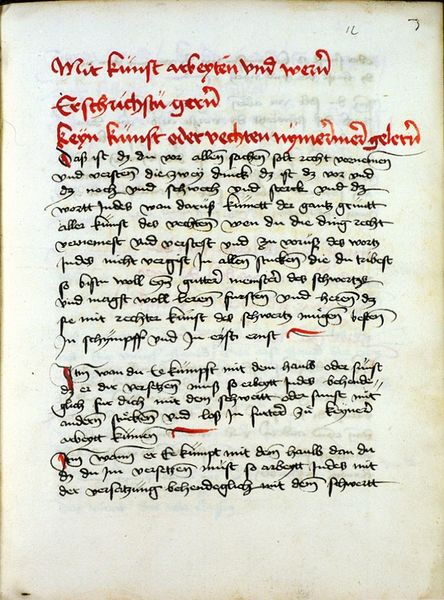 12 3
Mit künst arbeyten vnd wern̄
Erschrichstu gern̄
keyn künst oder vechten nymer mer gelern̄
Daß ist dz du vor allen sachen solt recht vernemen
vnd versten die zwey dinck dz ist dz vor vnd
dz noch vnd schwech vnd sterck vnd dz
wortt Indes wan daruß kümett der gantz
aller künst des vechten wen du die ding recht
vernemest vnd verstest vnd zu des wortz
Indes nicht vergist in allen stucken die du tribest
so bistu woll eyn gutter meinster des schwertz
vnd magst woll leren fursten vnd heren dz
sie mit rechter kunst des schwertz mügen besten
In schympff vnd In ernst
Itm wan du Ee kümpst mit dem haub oder sünst
dz er dir versetzen muß so erbeytt Indes behende
glich fur dich mit dem schwertt oder sunst mit
anderen stücken vnd loß in zu keyner
arbeytt kümen
Itm wann er Ee kümpt mit dem haub dan du
dz du Im versetzen must so arbeytt Indes mit
der versatzung behendeglich mit dem schwertt